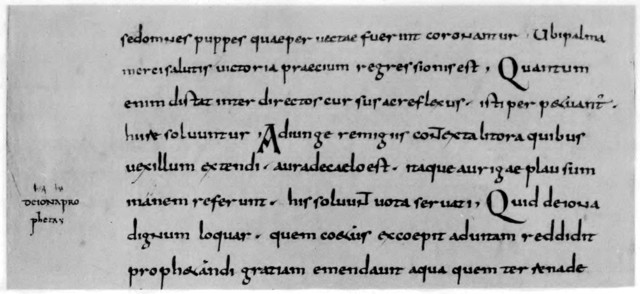 sedomnes puppes quaeper uectae fuerint coronantur · Ubipalma
mercisalutis uictoria praecium regressionisest , Quantum
enim distat inter directos cursus aereflexus · isti per
hire soluuntur , Adiunge remigiis contexta litora quibus
uexillum extendi · auradecaeloest · itaque aurigae plausum
inanem referunt · his soluunt uota seruati , Quid deiona
dignum loquar · quem excoepit aduitam reddidit
prophetandi gratiam emendauit aqua quem terrenade
deionapro
phetas